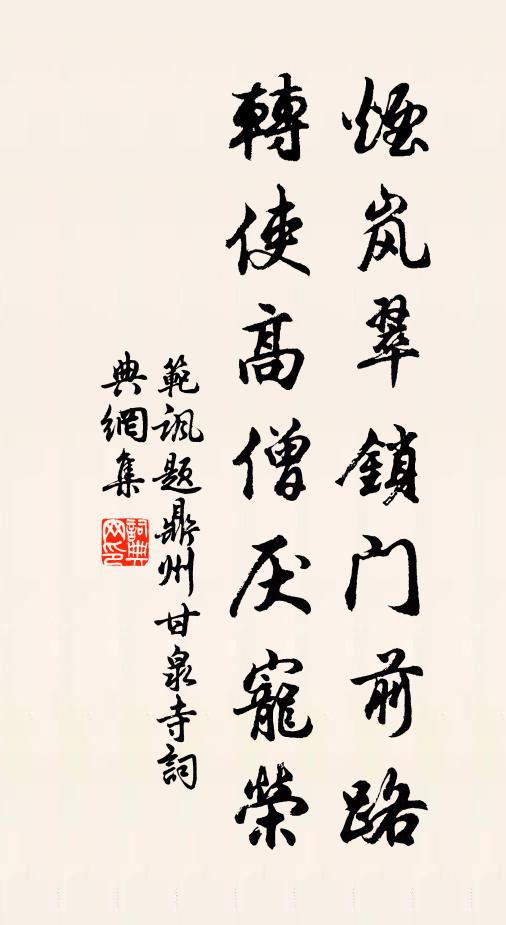 煙岚翠鎖門前路
轉使高僧厌寵榮
範諷題鼎州甘泉寺詞
典網集
詞典
网印